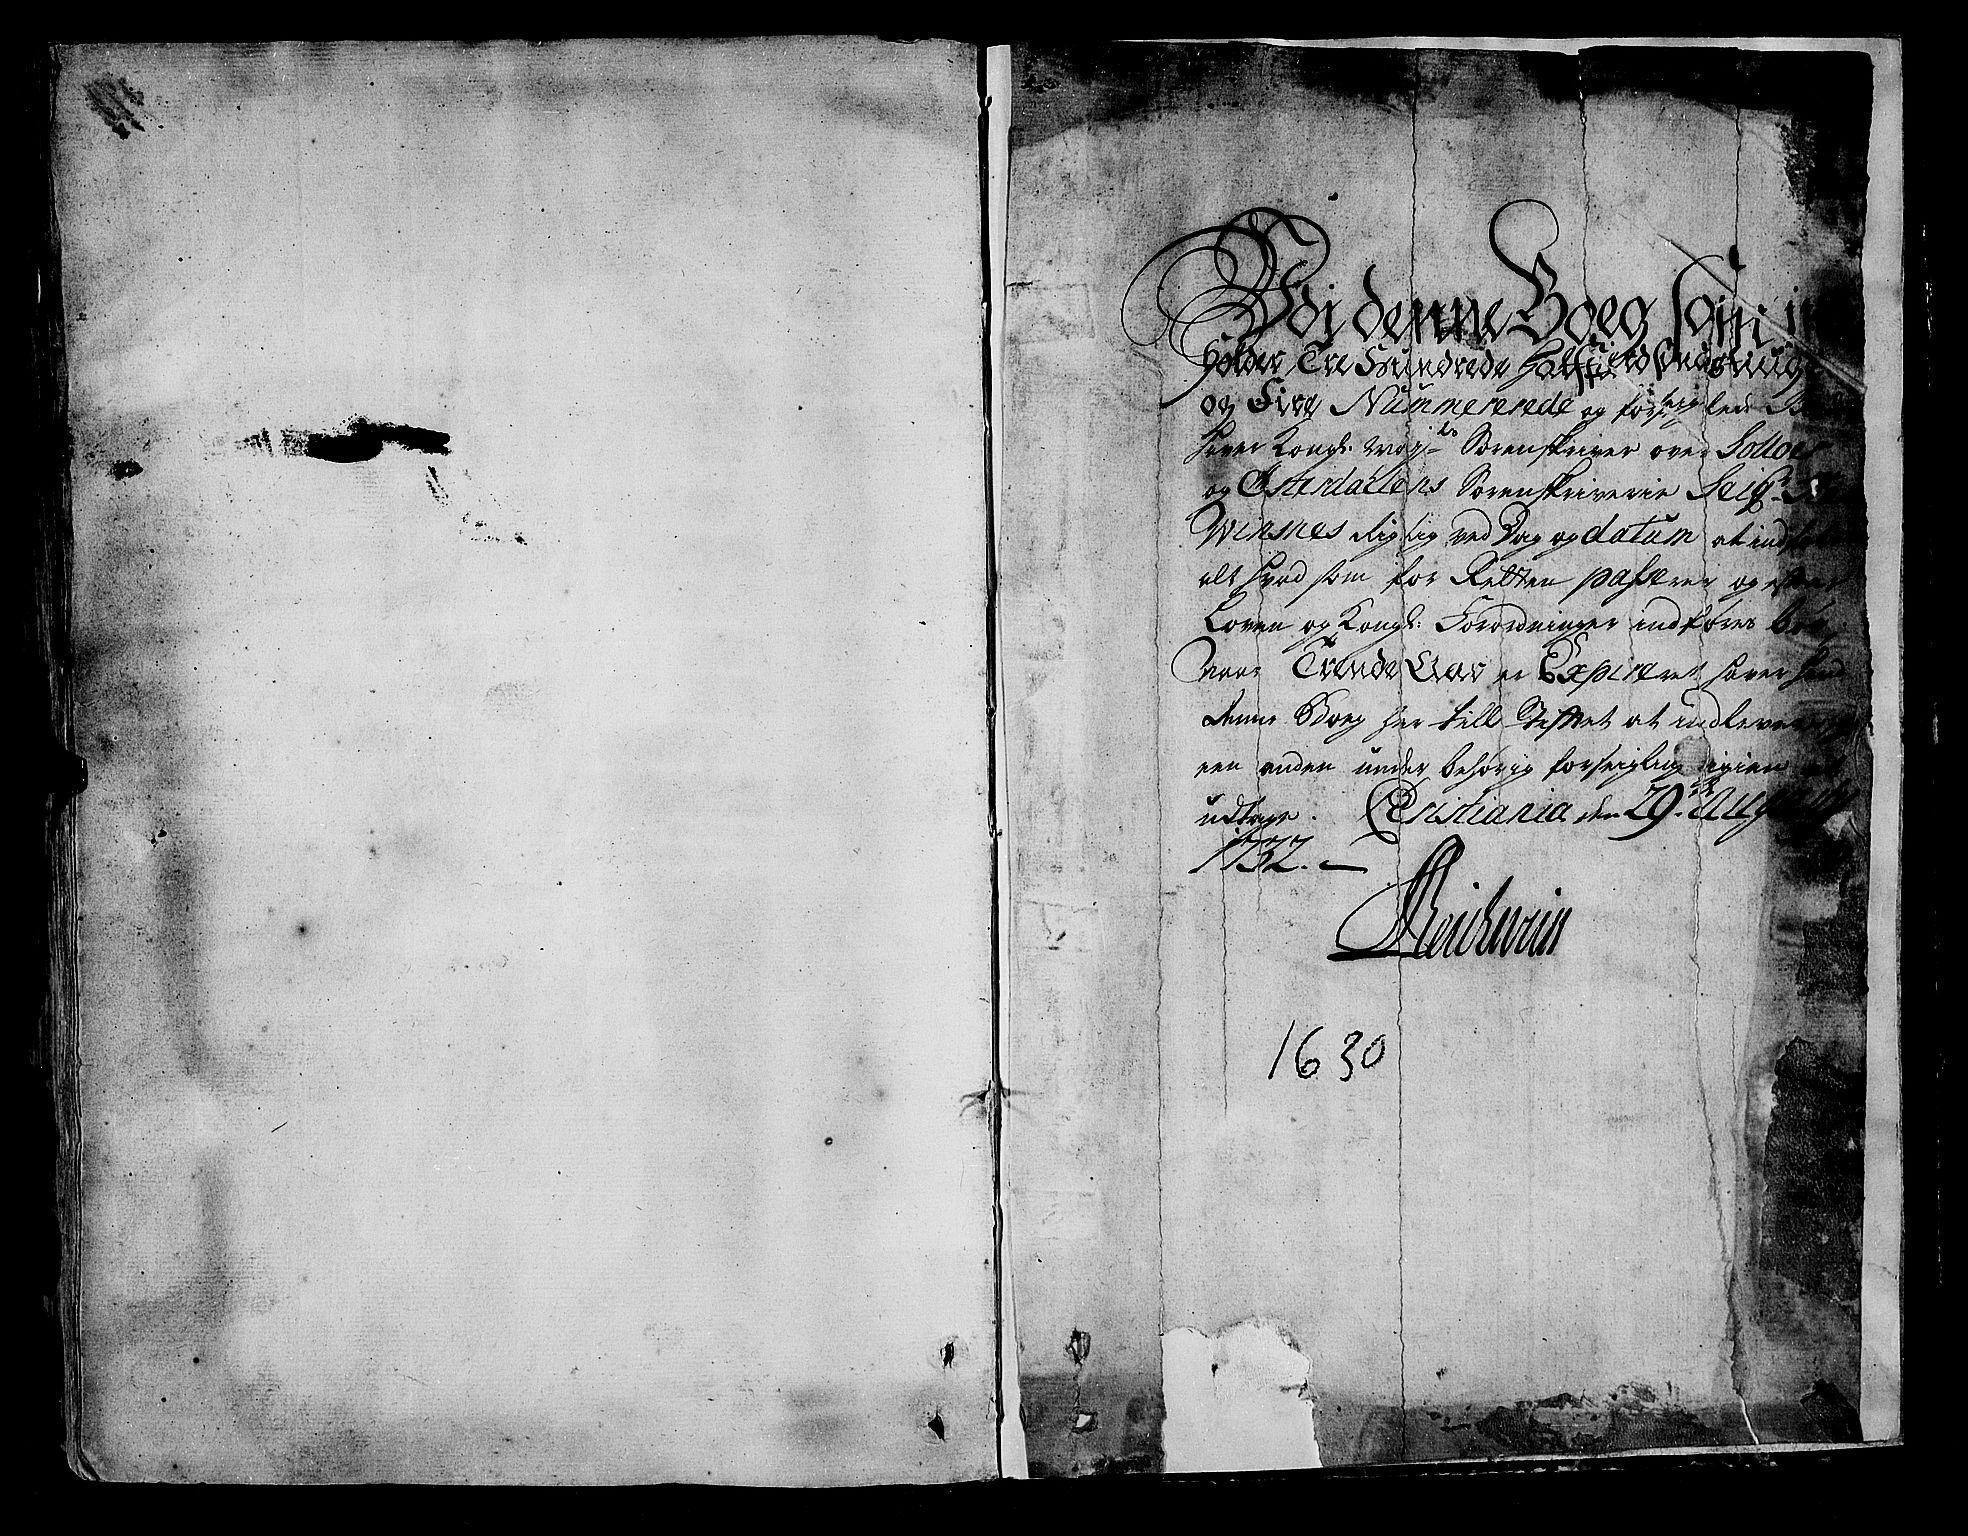 Udj denne Boeg som in
holder Tre Hundrede Halffierdsindstiuge
og Fire Nummererede og forseiglede
hever Kongl: May:ts Sorenskriver over Solloer
og Østerdaelens Sorenskriverie Seig:r
Winsnes rigtig ved Dag og datum at indføre
alt hvad som for Retten passerer og efter
Loven og Kongl: Forordninger indføres bør,
naar Trende Aar er Expireret haver hand
denne Boeg her till Stiftet at indlevere og
een anden under behørig forseigling igien at
udtage. Christiania den 29.de Augusti
1732. —
1630